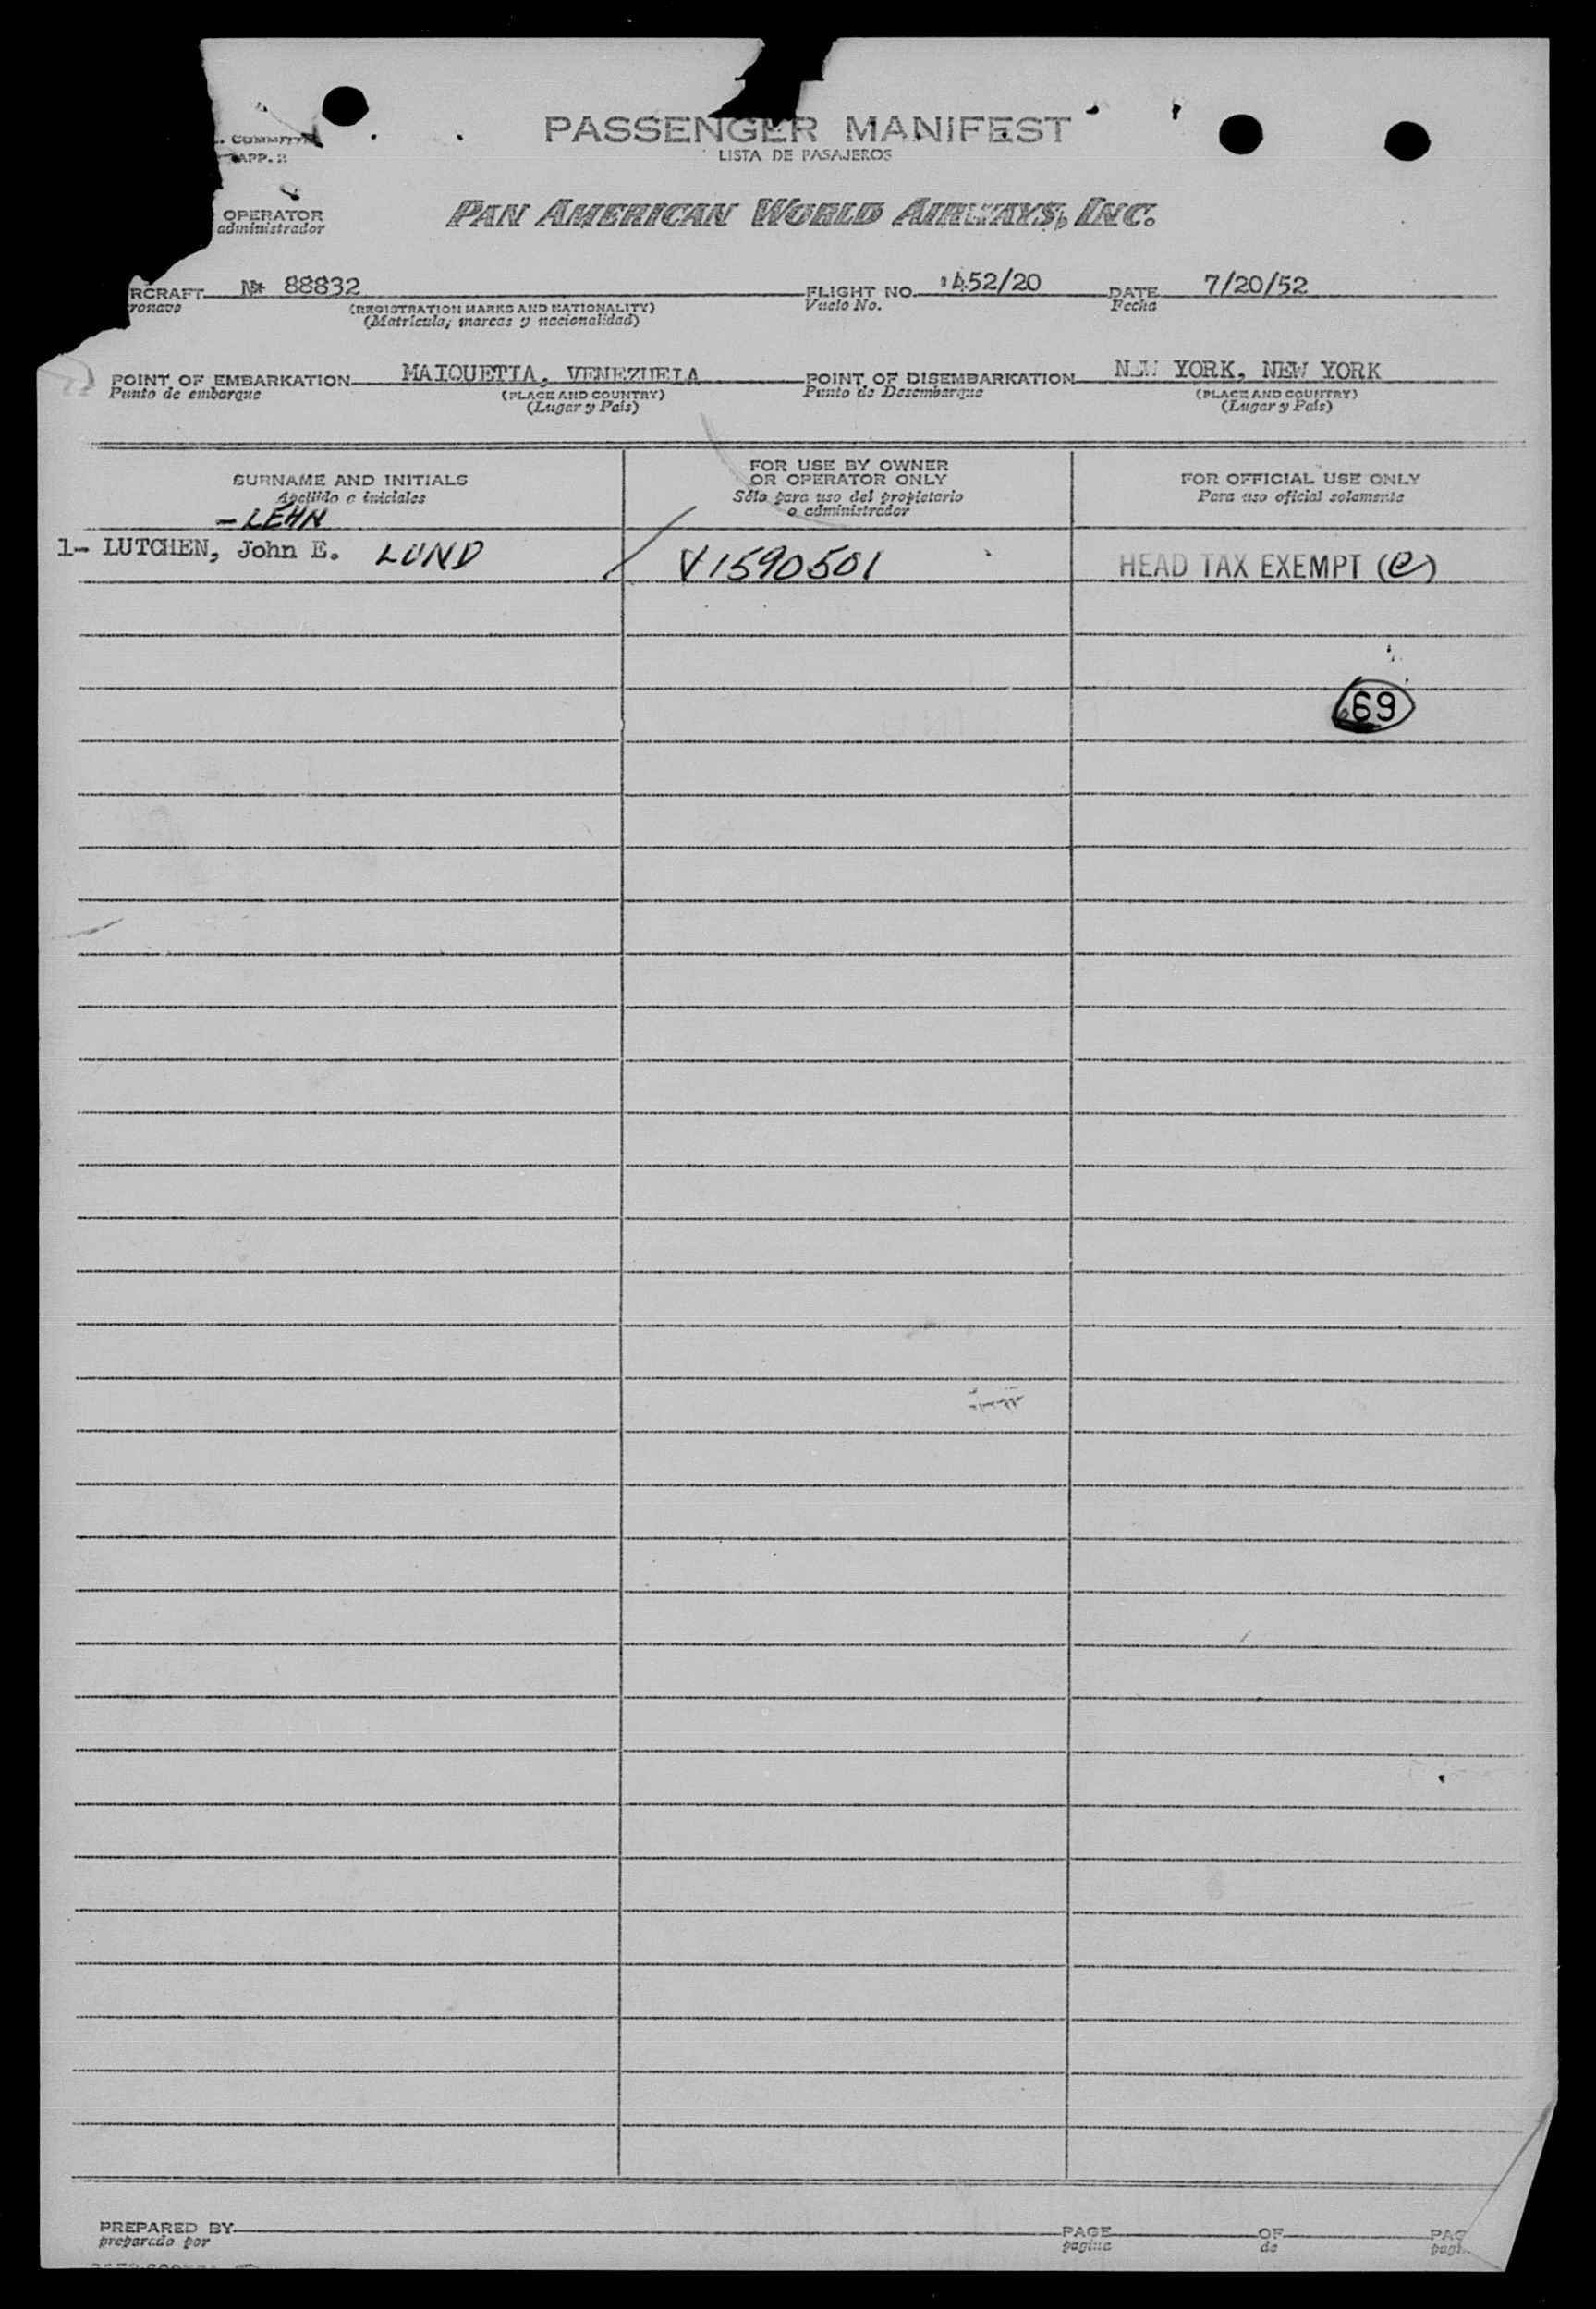 PASSENGER MANIFEST
LISTA DE PASAJEROS
APP. 2
OPERATOR
administrador
PAN AMERICAN WORLD AIRWAYS, INC.
RCRAFT 88832 FLIGHT NO. 452/20 DATE 7/20/52
ronave (REGISTRATION MARKS AND NATIONALITY) Vuelo No. Fecha
(Matrícula, marcas y nacionalidad)
POINT OF EMBARKATION MAIQUETIA, VENEZUELA POINT OF DISEMBARKATION NEW YORK, NEW YORK
Punto de embarque (PLACE AND COUNTRY) Punto de Desembarque (PLACE AND COUNTRY)
(Lugar y País) (Lugar y País)
SURNAME AND INITIALS FOR USE BY OWNER OR OPERATOR ONLY FOR OFFICIAL USE ONLY
Apellido e iniciales Sólo para uso del propietario o administrador Para uso oficial solamente
- LEHN
1- LUTCHEN, John E. LUND V1590501 HEAD TAX EXEMPT (e)
69
PREPARED BY PAGE OF PAG
preparado por pagina de pagi